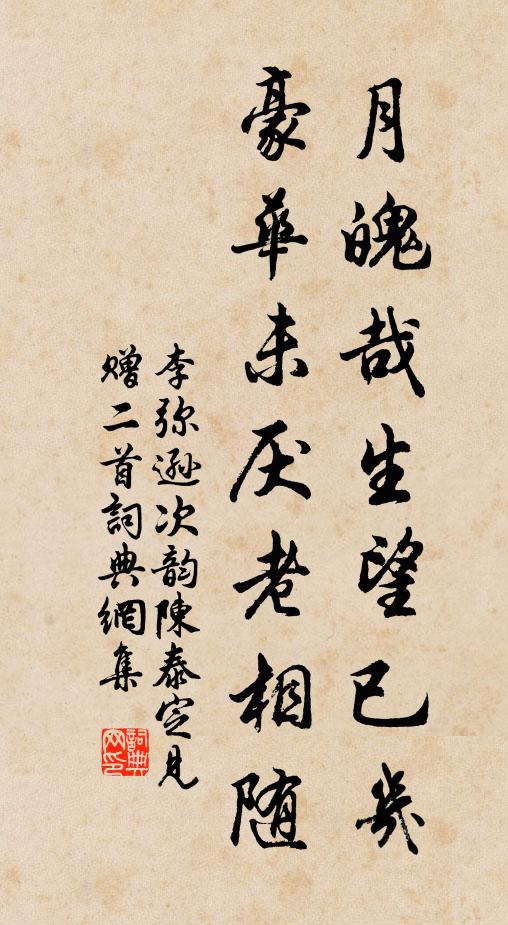 月魄哉生望已幾
豪華未厌老相随
李弥遜次韵陳泰定見
贈二首詞典網集
詞典
网印